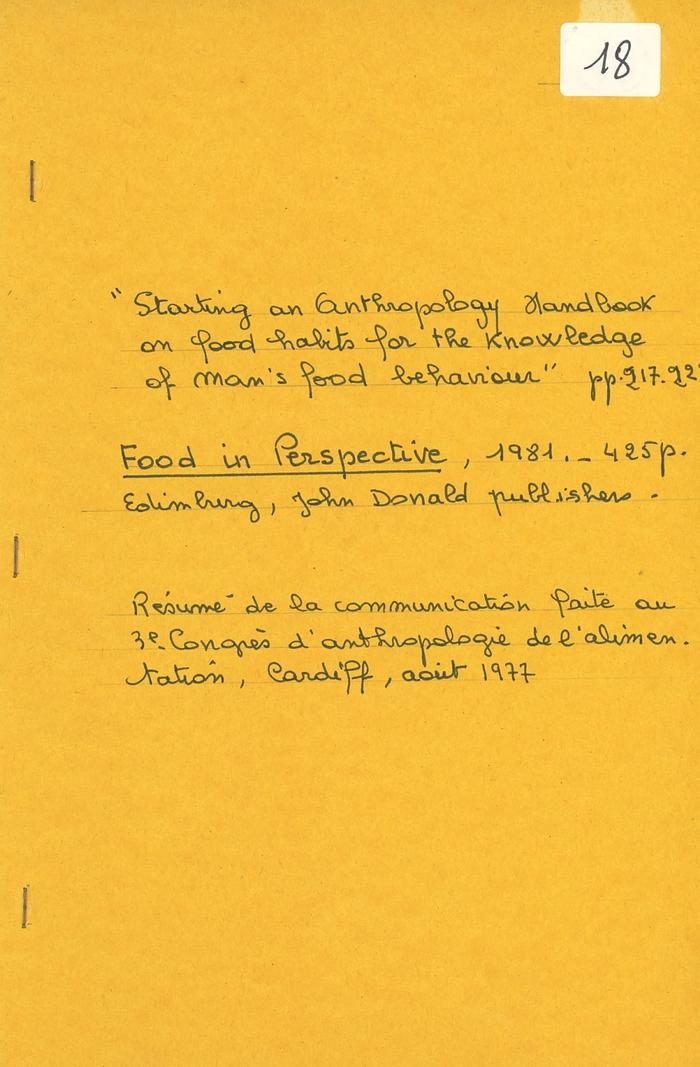 18
"Starting an Anthropology Handbook
on food habits for the Knowledge
of man's food behaviour" pp.217.22
Food in Perspective, 1981._ 425p.
Edimburg, John Donald publishers.
Résumé de la communication faite au
3e. Congrès d'anthropologie de l'alimen.
tation, Cardiff, août 1977